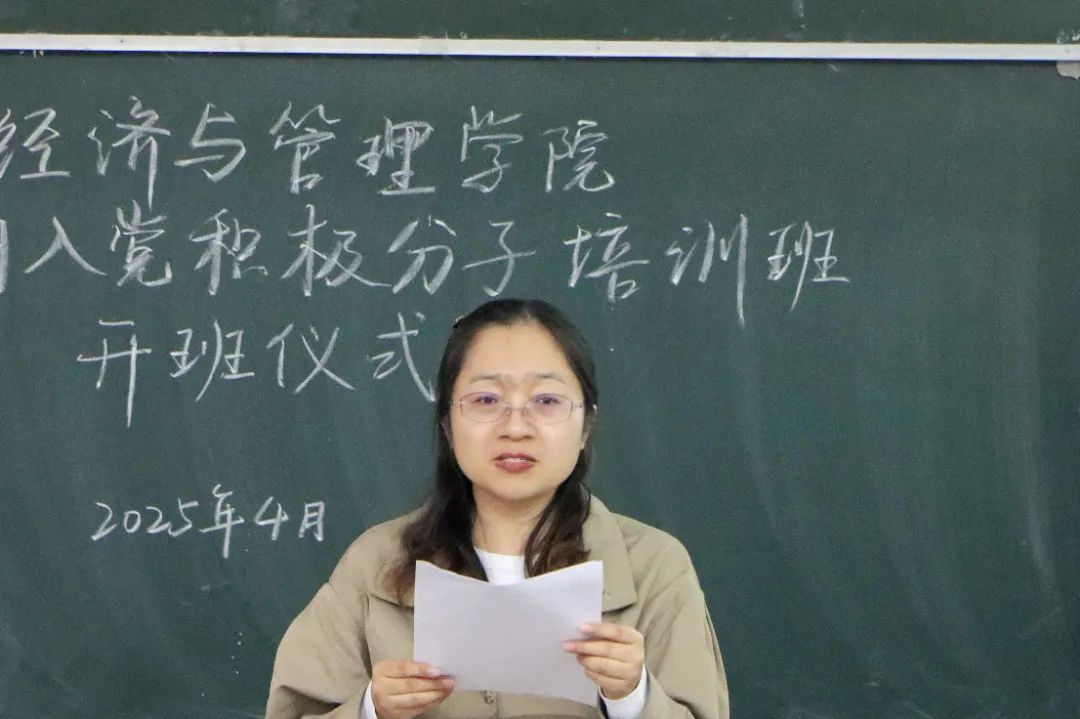 经济与管理学院
入党积极分子培训班
开班仪式
2025年4月